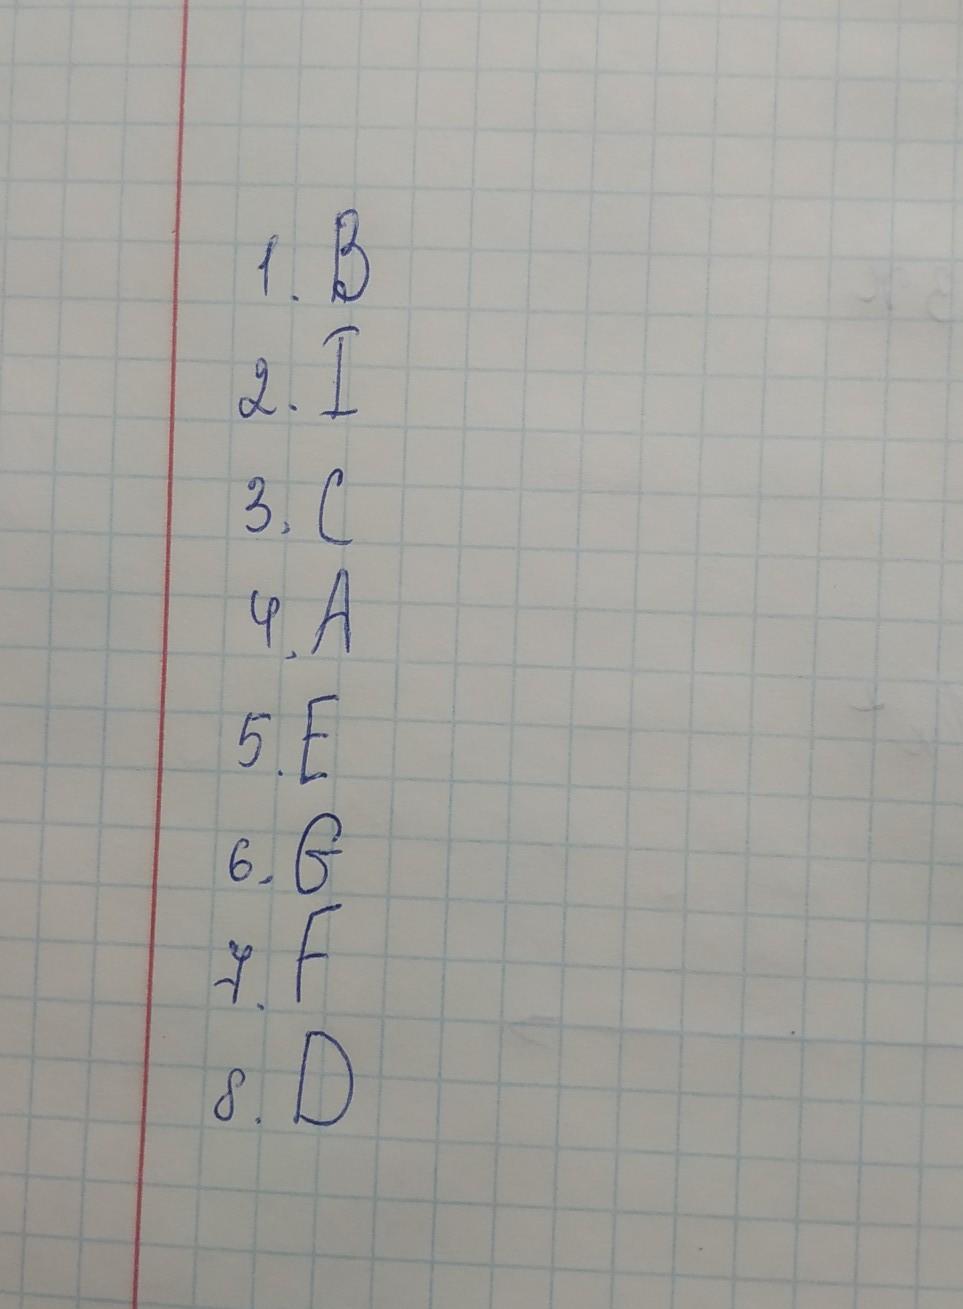 1. B
2. I
3. C
4. A
5. E
6. G
7. F
8. D